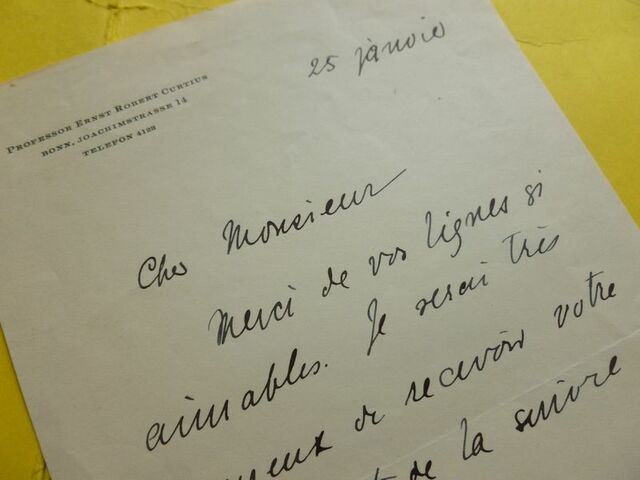 PROFESSOR ERNST ROBERT CURTIUS
BONN, JOACHIMSTRASSE 14
TELEFON 4122
25 janvier
Cher Monsieur
Merci de vos lignes si
aimables. Je serai très
de recevoir votre
de la suivre